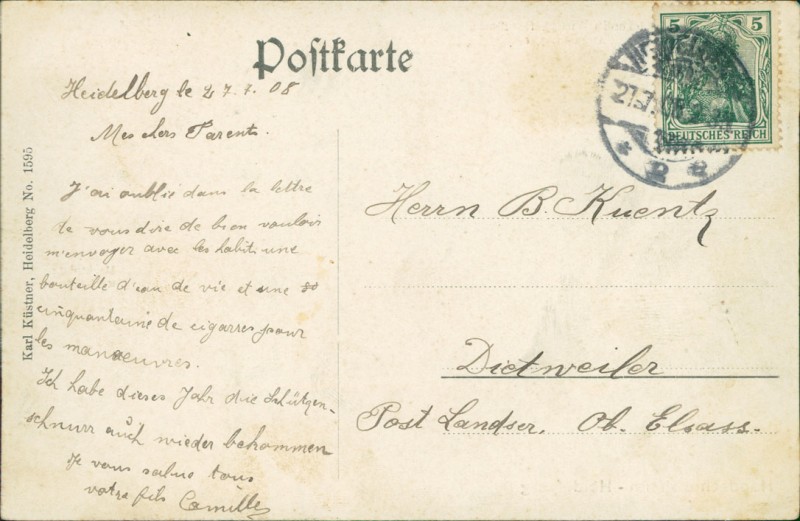 Postkarte
5 5
DEUTSCHES REICH
Heidelberg le 27.7.08
Mes chers Parents.
J'ai oublié dans la lettre
de vous dire de bien vouloir
m'envoyer avec les habits une
bouteille d'eau de vie et une
cinquantaine de cigarres pour
les manœuvres.
Ich habe dieses Jahr die Schützen-
schnurr auch wieder bekommen
Je vous salue tous
votre fils Camille
Herrn B. Kuentz
Dietweiler
Post Landser, Ob. Elsass.
Karl Küstner, Heidelberg No. 1595